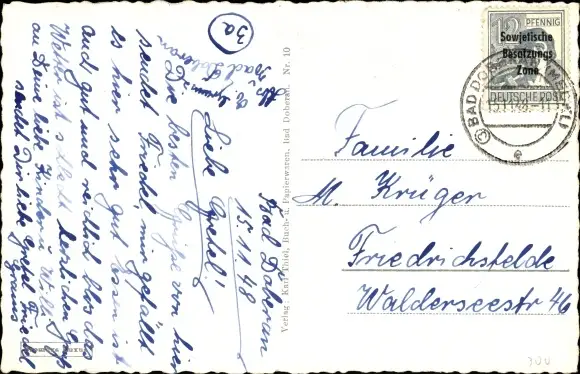 3a
Bad Doberan
15.11.48
Liebe Gretel!
Die besten Grüße von hier
sendet Friedel, mir gefällt
es hier sehr gut Essen ist
auch gut und reichlich blos das
Wetter ist schlecht herzlichen Gruß
an Deine liebe Kinder u. Willi
sendet Dir liebe Gretel Friedel
Verlag: Karl Thiel, Buch- u. Papierwaren, Bad Doberan. Nr. 10
12 PFENNIG
Sowjetische
Besatzungs
Zone
DEUTSCHE POST
BAD DOBERAN (MECKL)
Familie
M. Krüger
Friedrichsfelde
Walderseestr 46
300